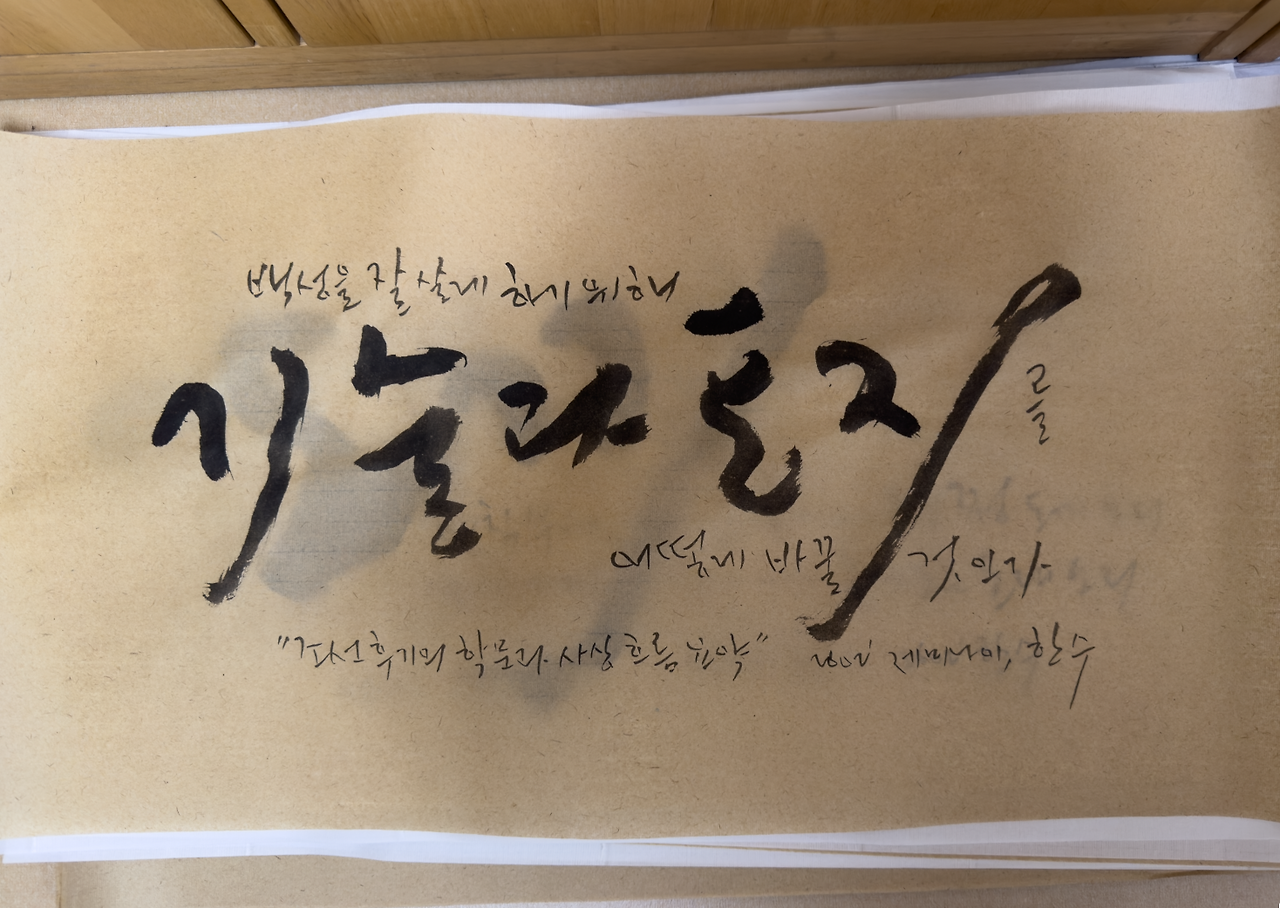 백성을 잘 살게 하기 위해
기술과 토지를
어떻게 바꿀 것인가
"조선후기의 학문과 사상 흐름 요약" 제미나이, 한수